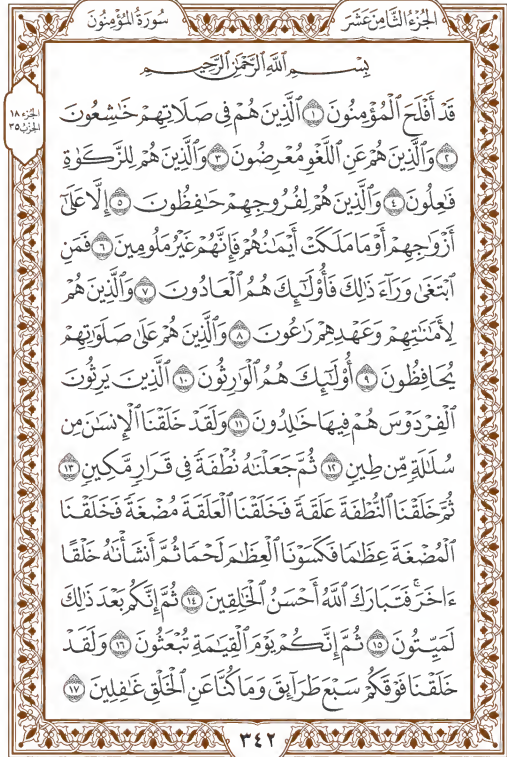 سُورَةُ المُؤْمِنُونَ
الجُزْءُ الثَّامِنَ عَشَرَ
الجزء ١٨
الحزب ٣٥
بِسْمِ ٱللَّهِ ٱلرَّحْمَٰنِ ٱلرَّحِيمِ
قَدْ أَفْلَحَ ٱلْمُؤْمِنُونَ ١ ٱلَّذِينَ هُمْ فِى صَلَاتِهِمْ خَٰشِعُونَ
٢ وَٱلَّذِينَ هُمْ عَنِ ٱللَّغْوِ مُعْرِضُونَ ٣ وَٱلَّذِينَ هُمْ لِلزَّكَوٰةِ
فَٰعِلُونَ ٤ وَٱلَّذِينَ هُمْ لِفُرُوجِهِمْ حَٰفِظُونَ ٥ إِلَّا عَلَىٰٓ
أَزْوَٰجِهِمْ أَوْ مَا مَلَكَتْ أَيْمَٰنُهُمْ فَإِنَّهُمْ غَيْرُ مَلُومِينَ ٦ فَمَنِ
ٱبْتَغَىٰ وَرَآءَ ذَٰلِكَ فَأُو۟لَٰٓئِكَ هُمُ ٱلْعَادُونَ ٧ وَٱلَّذِينَ هُمْ
لِأَمَٰنَٰتِهِمْ وَعَهْدِهِمْ رَٰعُونَ ٨ وَٱلَّذِينَ هُمْ عَلَىٰ صَلَوَٰتِهِمْ
يُحَافِظُونَ ٩ أُو۟لَٰٓئِكَ هُمُ ٱلْوَٰرِثُونَ ١٠ ٱلَّذِينَ يَرِثُونَ
ٱلْفِرْدَوْسَ هُمْ فِيهَا خَٰلِدُونَ ١١ وَلَقَدْ خَلَقْنَا ٱلْإِنسَٰنَ مِن
سُلَٰلَةٍ مِّن طِينٍ ١٢ ثُمَّ جَعَلْنَٰهُ نُطْفَةً فِى قَرَارٍ مَّكِينٍ ١٣
ثُمَّ خَلَقْنَا ٱلنُّطْفَةَ عَلَقَةً فَخَلَقْنَا ٱلْعَلَقَةَ مُضْغَةً فَخَلَقْنَا
ٱلْمُضْغَةَ عِظَٰمًا فَكَسَوْنَا ٱلْعِظَٰمَ لَحْمًا ثُمَّ أَنشَأْنَٰهُ خَلْقًا
ءَاخَرَ ۚ فَتَبَارَكَ ٱللَّهُ أَحْسَنُ ٱلْخَٰلِقِينَ ١٤ ثُمَّ إِنَّكُم بَعْدَ ذَٰلِكَ
لَمَيِّتُونَ ١٥ ثُمَّ إِنَّكُمْ يَوْمَ ٱلْقِيَٰمَةِ تُبْعَثُونَ ١٦ وَلَقَدْ
خَلَقْنَا فَوْقَكُمْ سَبْعَ طَرَآئِقَ وَمَا كُنَّا عَنِ ٱلْخَلْقِ غَٰفِلِينَ ١٧
٣٤٢